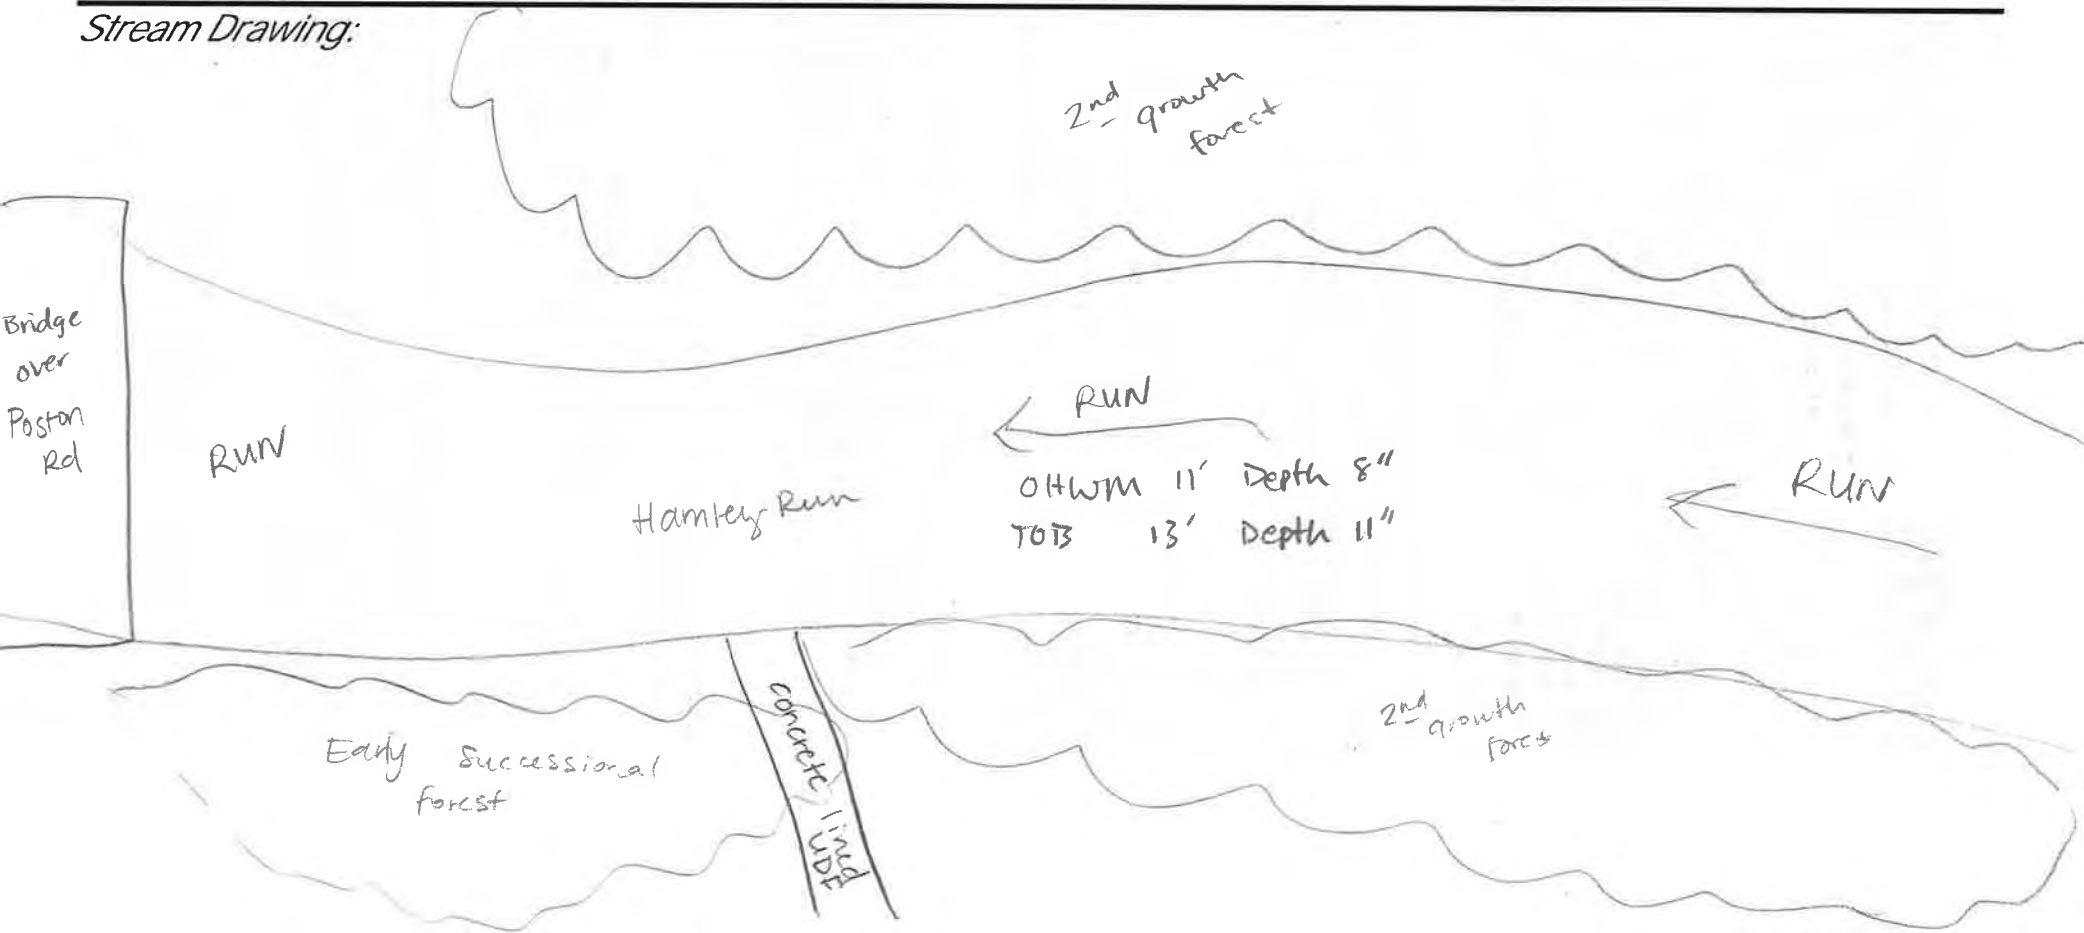 Stream Drawing:
2nd growth
forest
Bridge
over
Poston
Rd
RUN
RUN
RUN
Hamley Run
OHWM 11' Depth 8"
TOB 13' Depth 11"
Early Successional
forest
concrete lined
UDF
2nd growth
fores